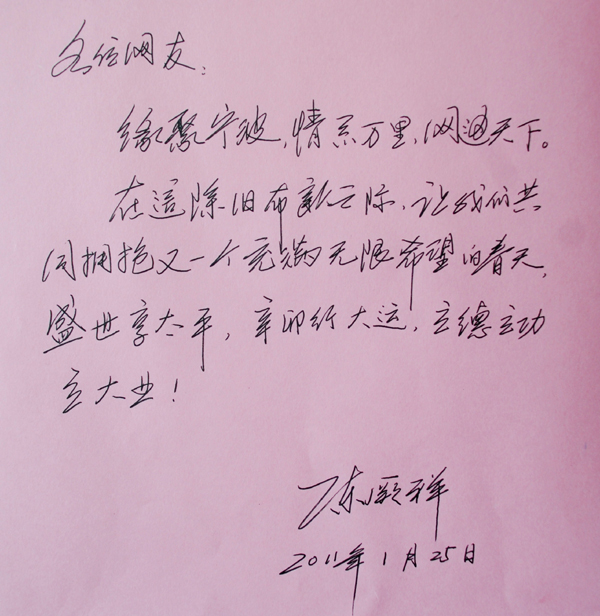 各位网友：
缘聚宁波，情系万里，网通天下。
在這除旧布新之际，让我们共
同拥抱又一个充满无限希望的春天，
盛世享太平，辛卯行大运，立德立功
立大业！
陈顺祥
2011年1月25日